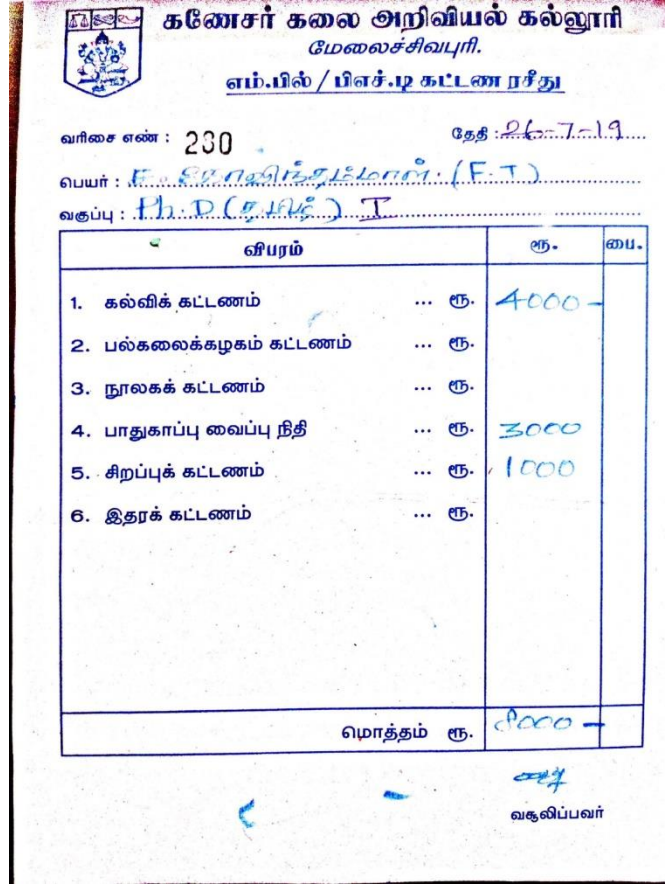 கணேசர் கலை அறிவியல் கல்லூரி
மேலைச்சிவபுரி.
எம்.பில் / பிஎச்.டி கட்டண ரசீது
வரிசை எண் : 230 தேதி : 26-7-19
பெயர் : கோவிந்தம்மாள். (F.T)
வகுப்பு : Ph.D (தமிழ்) I
விபரம் ரூ. பை.
1. கல்விக் கட்டணம் ... ரூ. 4000-
2. பல்கலைக்கழகம் கட்டணம் ... ரூ.
3. நூலகக் கட்டணம் ... ரூ.
4. பாதுகாப்பு வைப்பு நிதி ... ரூ. 3000
5. சிறப்புக் கட்டணம் ... ரூ. 1000
6. இதரக் கட்டணம் ... ரூ.
மொத்தம் ரூ. 8000-
வசூலிப்பவர்